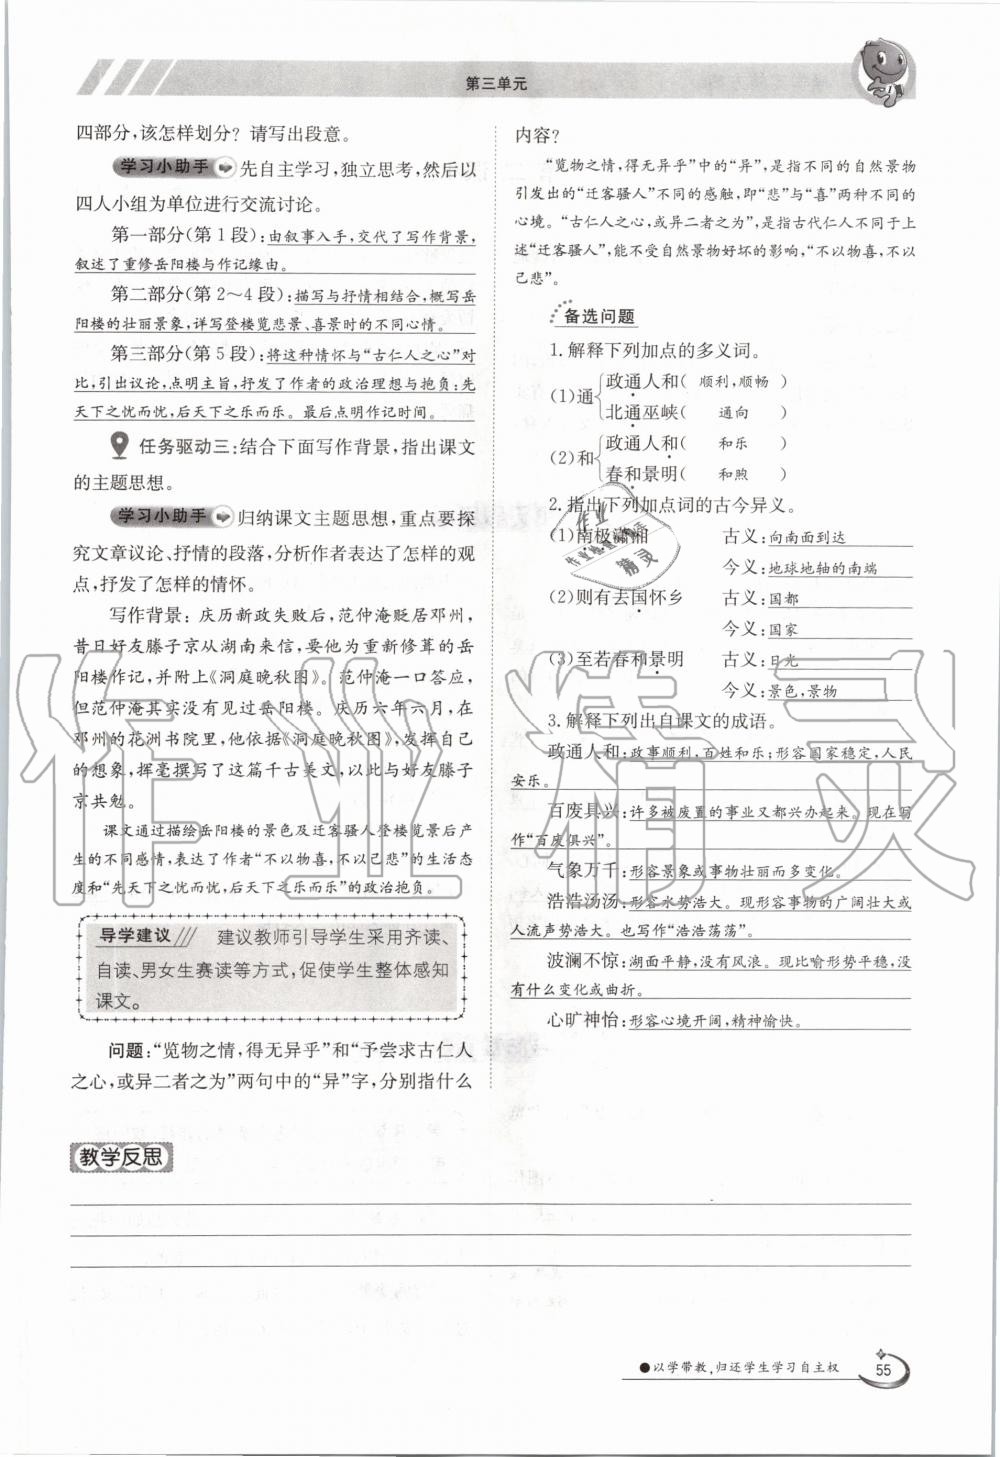 第三单元
四部分,该怎样划分? 请写出段意。
学习小助手 先自主学习,独立思考,然后以
四人小组为单位进行交流讨论。
第一部分(第 1 段):由叙事入手,交代了写作背景,
叙述了重修岳阳楼与作记缘由。
第二部分(第 2～4 段):描写与抒情相结合,概写岳
阳楼的壮丽景象,详写登楼览悲景、喜景时的不同心情。
第三部分(第 5 段):将这种情怀与“古仁人之心”对
比,引出议论,点明主旨,抒发了作者的政治理想与抱负:先
天下之忧而忧,后天下之乐而乐。最后点明作记时间。
任务驱动三:结合下面写作背景,指出课文
的主题思想。
学习小助手 归纳课文主题思想,重点要探
究文章议论、抒情的段落,分析作者表达了怎样的观
点,抒发了怎样的情怀。
写作背景: 庆历新政失败后,范仲淹贬居邓州,
昔日好友滕子京从湖南来信,要他为重新修葺的岳
阳楼作记,并附上《洞庭晚秋图》。范仲淹一口答应,
但范仲淹其实没有见过岳阳楼。庆历六年六月,在
邓州的花洲书院里,他依据《洞庭晚秋图》,发挥自己
的想象,挥毫撰写了这篇千古美文,以此与好友滕子
京共勉。
课文通过描绘岳阳楼的景色及迁客骚人登楼览景后产
生的不同感情,表达了作者“不以物喜,不以己悲”的生活态
度和“先天下之忧而忧,后天下之乐而乐”的政治抱负。
导学建议 建议教师引导学生采用齐读、
自读、男女生赛读等方式,促使学生整体感知
课文。
问题:“览物之情,得无异乎”和“予尝求古仁人
之心,或异二者之为”两句中的“异”字,分别指什么
内容?
“览物之情,得无异乎”中的“异”,是指不同的自然景物
引发出的“迁客骚人”不同的感触,即“悲”与“喜”两种不同的
心境。“古仁人之心,或异二者之为”,是指古代仁人不同于上
述“迁客骚人”,能不受自然景物好坏的影响,“不以物喜,不以
己悲”。
备选问题
1.解释下列加点的多义词。
(1)通
政通人和( 顺利,顺畅 )
北通巫峡( 通向 )
(2)和
政通人和( 和乐 )
春和景明( 和煦 )
2.指出下列加点词的古今异义。
(1)南极潇湘 古义:向南面到达
今义:地球地轴的南端
(2)则有去国怀乡 古义:国都
今义:国家
(3)至若春和景明 古义:日光
今义:景色,景物
3.解释下列出自课文的成语。
政通人和:政事顺利,百姓和乐;形容国家稳定,人民
安乐。
百废具兴:许多被废置的事业又都兴办起来。现在写
作“百废俱兴”。
气象万千:形容景象或事物壮丽而多变化。
浩浩汤汤:形容水势浩大。现形容事物的广阔壮大或
人流声势浩大。也写作“浩浩荡荡”。
波澜不惊:湖面平静,没有风浪。现比喻形势平稳,没
有什么变化或曲折。
心旷神怡:形容心境开阔,精神愉快。
作业精灵
作业
作业检查小助手
精灵
教学反思
●以学带教,归还学生学习自主权
55